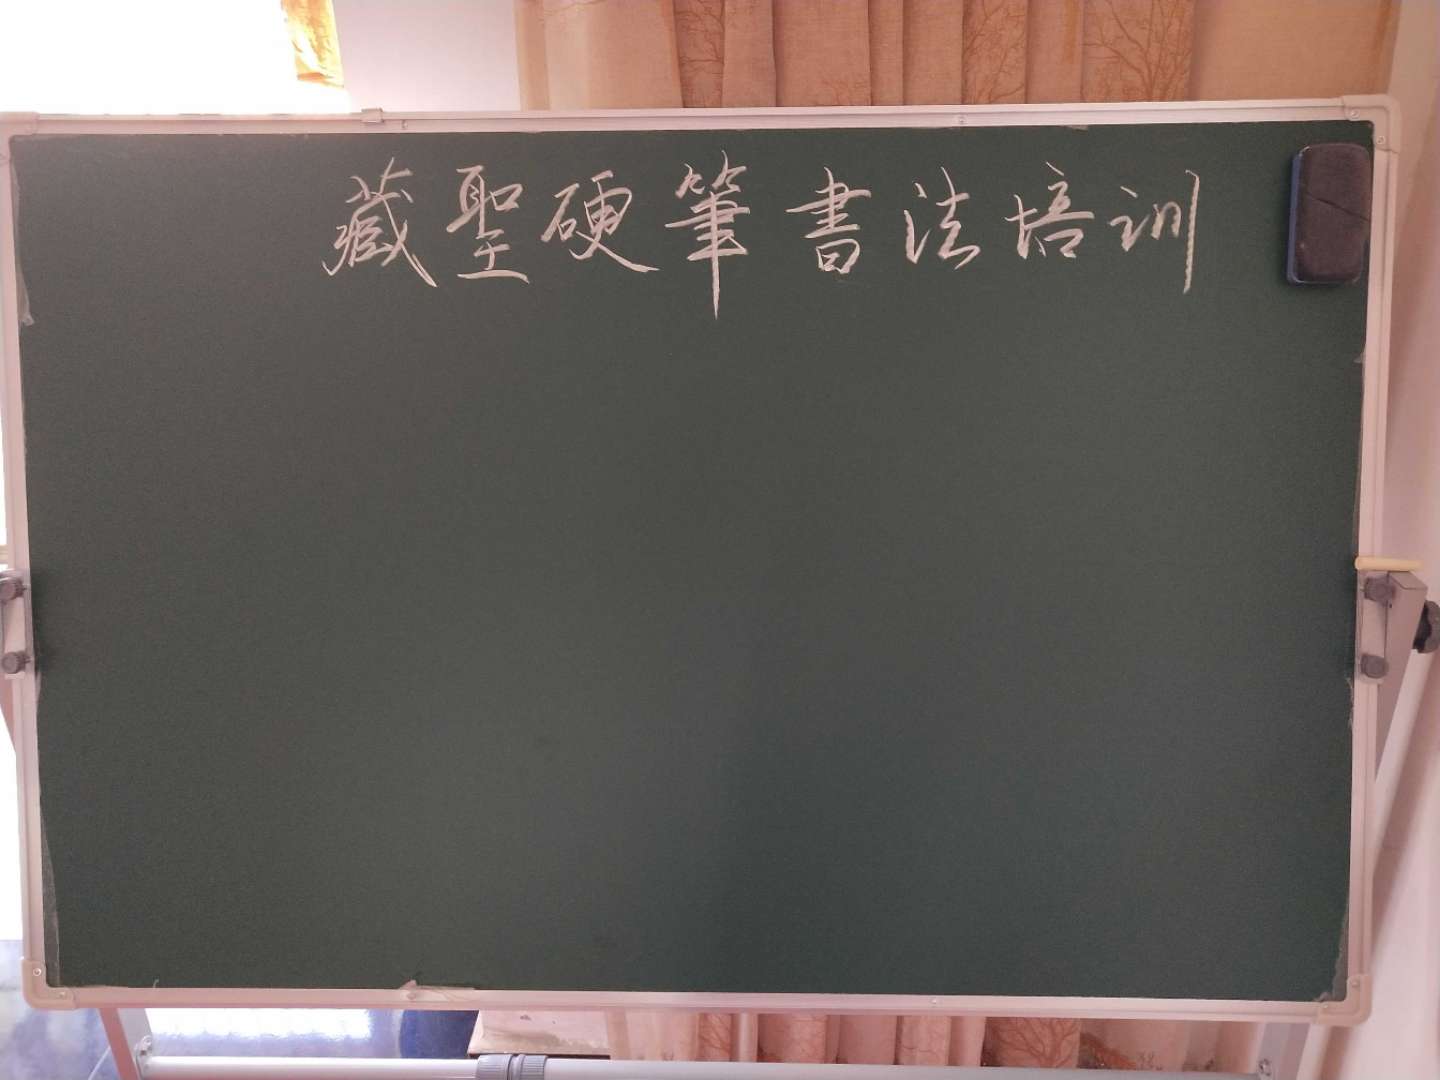 藏聖硬筆書法培训